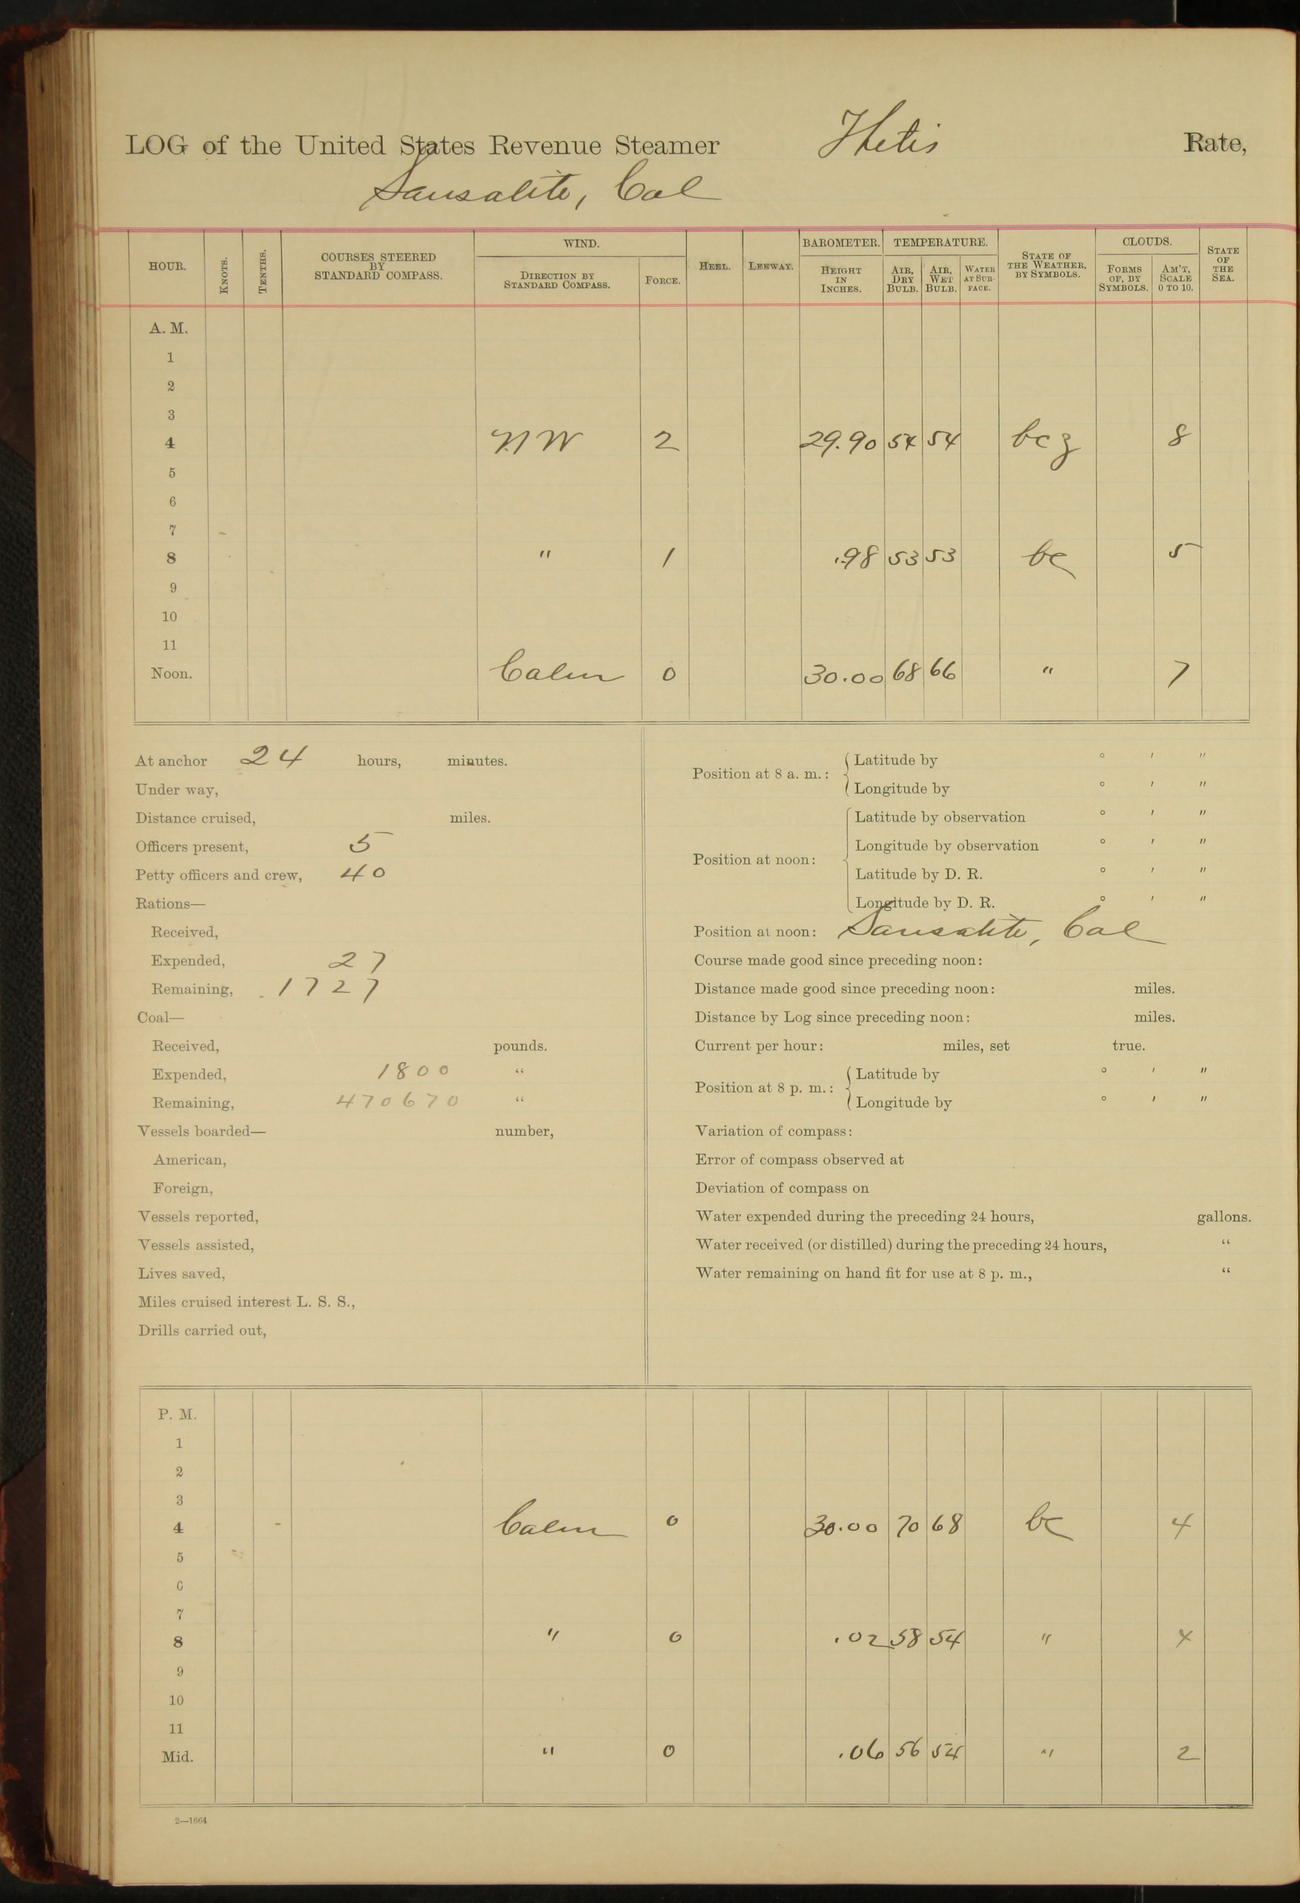 LOG of the United States Revenue Steamer Thetis Rate,
Sausalito, Cal
HOUR. KNOTS. TENTHS. COURSES STEERED BY STANDARD COMPASS. WIND. DIRECTION BY STANDARD COMPASS. FORCE. HEEL. LEEWAY. BAROMETER. HEIGHT IN INCHES. TEMPERATURE. AIR, DRY BULB. AIR, WET BULB. WATER AT SURFACE. STATE OF THE WEATHER, BY SYMBOLS. CLOUDS. FORMS OF, BY SYMBOLS. AM'T, SCALE 0 TO 10. STATE OF THE SEA.
A. M.
1
2
3
4 NW 2 29.90 54 54 bcz 8
5
6
7
8 " 1 .98 53 53 bc 5
9
10
11
Noon. Calm 0 30.00 68 66 " 7
At anchor 24 hours, minutes.
Under way,
Distance cruised, miles.
Officers present, 5
Petty officers and crew, 40
Rations—
Received,
Expended, 27
Remaining, 1727
Coal—
Received, pounds.
Expended, 1800 "
Remaining, 470670 "
Vessels boarded— number,
American,
Foreign,
Vessels reported,
Vessels assisted,
Lives saved,
Miles cruised interest L. S. S.,
Drills carried out,
Position at 8 a. m.: Latitude by ° ′ ″
Longitude by ° ′ ″
Position at noon: Latitude by observation ° ′ ″
Longitude by observation ° ′ ″
Latitude by D. R. ° ′ ″
Longitude by D. R. ° ′ ″
Position at noon: Sausalito, Cal
Course made good since preceding noon:
Distance made good since preceding noon: miles.
Distance by Log since preceding noon: miles.
Current per hour: miles, set true.
Position at 8 p. m.: Latitude by ° ′ ″
Longitude by ° ′ ″
Variation of compass:
Error of compass observed at
Deviation of compass on
Water expended during the preceding 24 hours, gallons.
Water received (or distilled) during the preceding 24 hours, "
Water remaining on hand fit for use at 8 p. m., "
P. M.
1
2
3
4 Calm 0 30.00 70 68 bc 4
5
6
7
8 " 0 .02 58 54 " 4
9
10
11
Mid. " 0 .06 56 54 " 2
2—1664